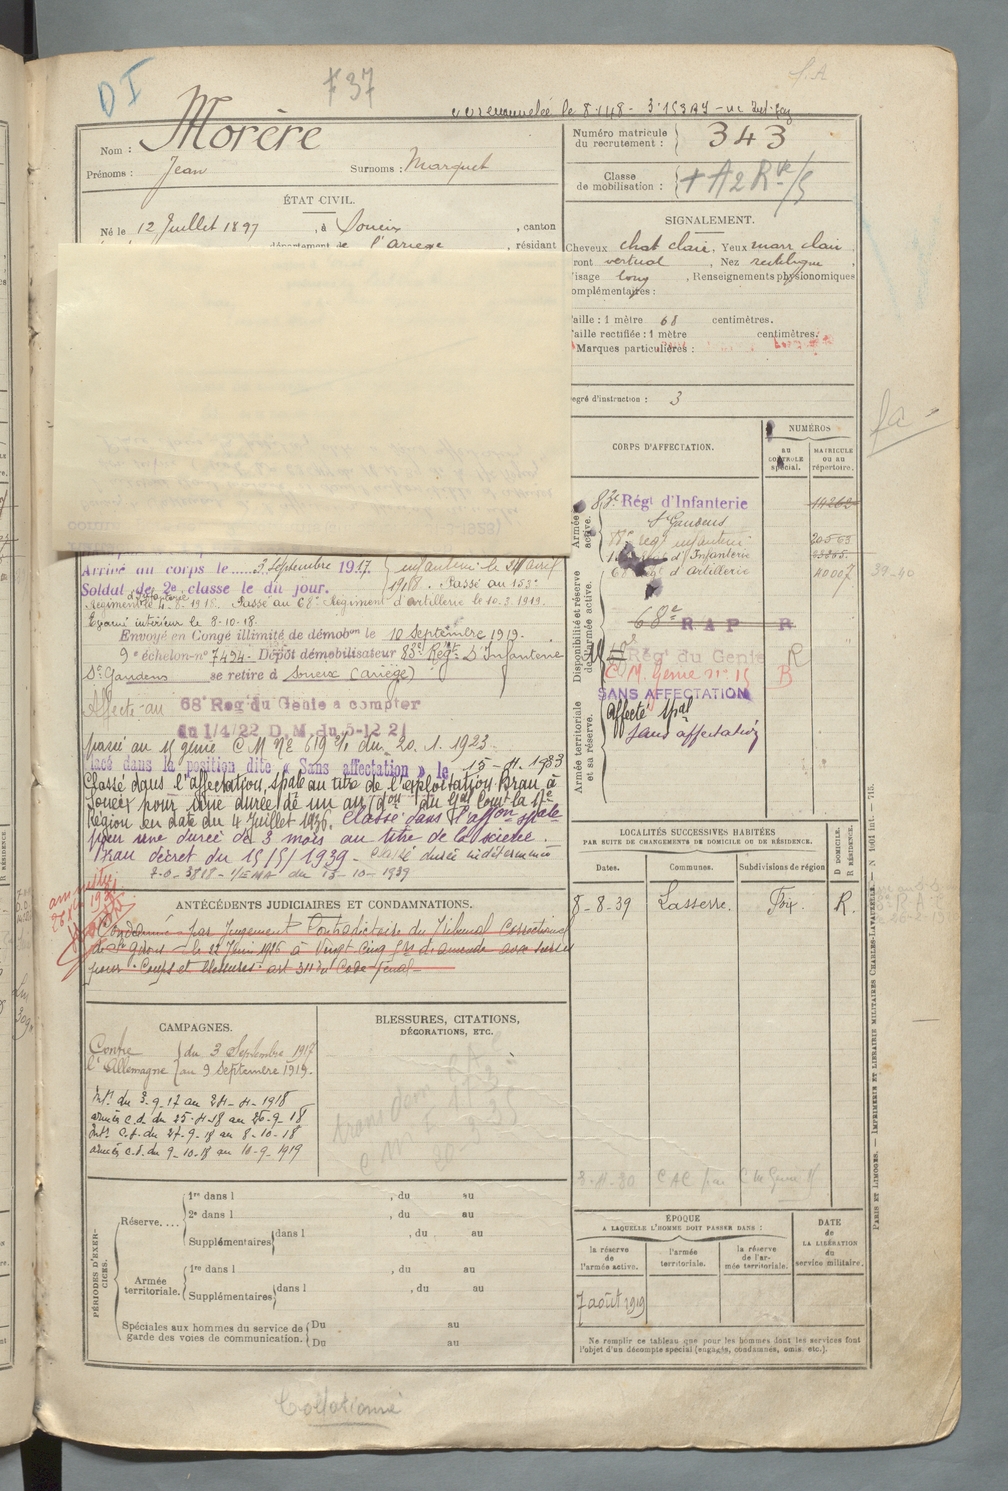 D I
F 37
S.A
renouvelée le 8.1.48 -
Nom : Morère
Prénoms : Jean Surnoms : Marquet
Numéro matricule du recrutement : 343
Classe de mobilisation : + A2 Rve/5
ÉTAT CIVIL.
Né le 12 Juillet 1897, à Soueix, canton
département de l'Ariège, résidant
SIGNALEMENT.
Cheveux chat clair, Yeux marr clair
ront vertical, Nez rectiligne,
isage long, Renseignements physionomiques
omplémentaires :
aille : 1 mètre 68 centimètres.
aille rectifiée : 1 mètre centimètres.
Marques particulières :
egré d'instruction : 3
fa -
CORPS D'AFFECTATION.
NUMÉROS
AU CONTRÔLE spécial.
MATRICULE OU AU répertoire.
Armée active.
83e Régt d'Infanterie 14262
St Gaudens
reg infanterie
d'Infanterie
68 d'artillerie 40007
39-40
Disponibilité et réserve de l'armée active.
68e R A P R
Rég du Genie R
C.M. Génie n° 15 B
SANS AFFECTATION
Armée territoriale et sa réserve.
Affecté spal
Sans affectation
Arrivé au corps le 3 Septembre 1917. infanterie le 24 avril
Soldat de 2e classe le dit jour. 1918. Passé au 153e
Régiment d'infanterie le 4-8-1918. Passé au 68e Régiment d'artillerie le 10-3-1919.
intérieur le 8-10-18.
Envoyé en Congé illimité de démobon le 10 Septembre 1919.
9e échelon - n° 7494 - Dépôt démobilisateur 83e Régt D'Infanterie
St Gaudens se retire à Soueix (Ariège)
Affecté au 68 Reg du Genie a compter
du 1/4/22 D.M. du 5-12 21
passé au génie C M N° 619 2/1 du 20.1.1923
lacé dans la position dite « Sans affectation » le 15-11.1933
Classé dans l'affectation spale au titre de l'exploitation Brau à
Soueix pour une durée de un an (don du Gal Comt la
Région en date du 4 Juillet 1936. Classé dans l'affon spale
pour une durée de 3 mois au titre de la scierie
Brau décret du 15/5/1939 - Classé durée indéterminée
du 13-10-1939
LOCALITÉS SUCCESSIVES HABITÉES
PAR SUITE DE CHANGEMENTS DE DOMICILE OU DE RÉSIDENCE.
Dates. Communes. Subdivisions de région
D DOMICILE.
R RÉSIDENCE.
8-8-39 Lasserre. Foix. R.
3-11-30 CAC par C M Genie
ANTÉCÉDENTS JUDICIAIRES ET CONDAMNATIONS.
Condamné par Jugement Contradictoire du Tribunal Correctionnel
de St Girons le 22 Juin 1926 à Vingt Cinq frs d'amende avec sursis
pour "Coups et blessures" art 311 du Code Pénal
CAMPAGNES.
Contre l'Allemagne du 3 Septembre 1917
au 9 Septembre 1919.
Intr du 3-9-17 au 24-4-1918
armées c.d. du 25-4-18 au 26-9-18
Intr C.d. du 27-9-18 au 8-10-18
armées c.d. du 9-10-18 au 10-9-1919
BLESSURES, CITATIONS,
DÉCORATIONS, ETC.
PÉRIODES D'EXERCICES.
Réserve....
1re dans l , du au
2e dans l , du au
Supplémentaires dans l , du au
Armée territoriale.
1re dans l , du au
Supplémentaires dans l , du au
Spéciales aux hommes du service de garde des voies de communication.
Du au
Du au
ÉPOQUE
A LAQUELLE L'HOMME DOIT PASSER DANS :
la réserve de l'armée active.
l'armée territoriale.
la réserve de l'armée territoriale.
DATE de LA LIBÉRATION du service militaire.
7 août 1919
Ne remplir ce tableau que pour les hommes dont les services font
l'objet d'un décompte spécial (engagés, condamnés, omis, etc.).
PARIS ET LIMOGES. — IMPRIMERIE ET LIBRAIRIE MILITAIRES CHARLES-LAVAUZELLE. — N° 1061 int. — 715.
Collationné